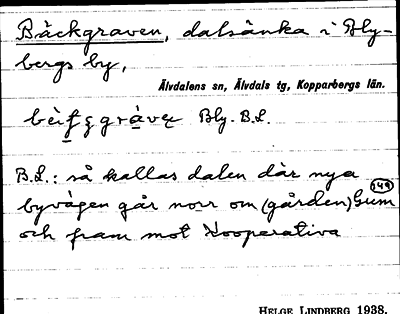 Bäckgraven, dalsänka i Bly-
bergs by,
Älvdalens sn, Älvdals tg, Kopparbergs län.
Bly. B.L.
B.L.: så kallas dalen där nya
149
byvägen går norr om (gården) Gum
och fram mot Kooperativa
HELGE LINDBERG 1938.